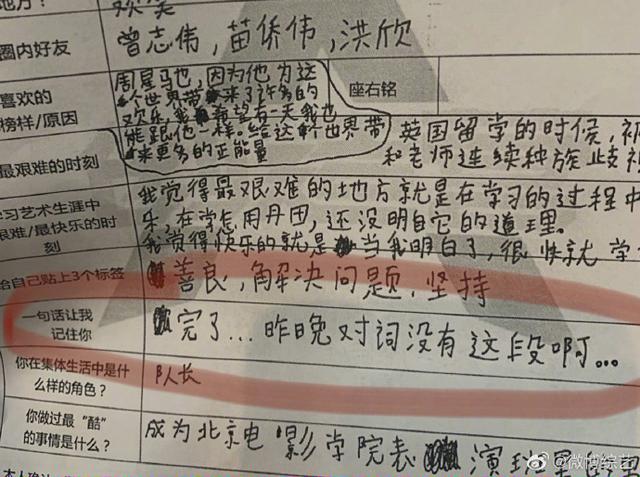 地方?
欢笑
圈内好友
曾志伟,苗侨伟,洪欣
喜欢的
榜样/原因
周星马也,因为他为这
个世界带来了许多的
欢乐,我希望有一天我也
能跟他一样。给这个世界带
来更多的正能量
座右铭
最艰难的时刻
英国留学的时候,被
和老师连续种族歧视
学习艺术生涯中
艰难/最快乐的时
刻
我觉得最艰难的地方就是在学习的过程中
乐,在学怎用丹田,还没明白它的道理。
我觉得快乐的就是当我明白了,很快就学
给自己贴上3个标签
善良,解决问题,坚持
一句话让我
记住你
完了...昨晚对词没有这段啊...
你在集体生活中是什
么样的角色?
队长
你做过最“酷”
的事情是什么?
成为北京电影学院表演班
本人确认
@微博综艺